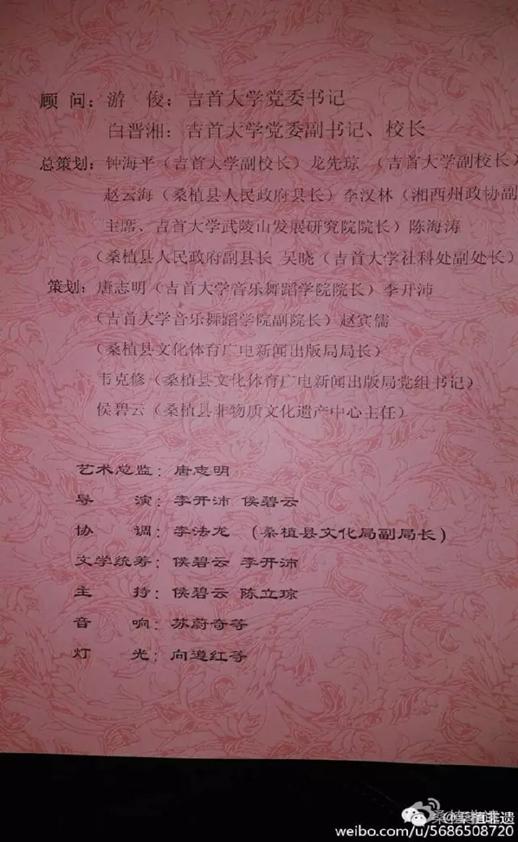 顾 问：游 俊：吉首大学党委书记
白晋湘：吉首大学党委副书记、校长
总策划：钟海平（吉首大学副校长）龙先琼 （吉首大学副校长）
赵云海（桑植县人民政府县长）李汉林（湘西州政协副
主席、吉首大学武陵山发展研究院院长）陈海涛
（桑植县人民政府副县长 吴晓（吉首大学社科处副处长）
策划：唐志明（吉首大学音乐舞蹈学院院长）李开沛
（吉首大学音乐舞蹈学院副院长）赵宾儒
（桑植县文化体育广电新闻出版局局长）
韦克修（桑植县文化体育广电新闻出版局党组书记）
侯碧云（桑植县非物质文化遗产中心主任）
艺术总监：唐志明
导 演：李开沛 侯碧云
协 调：李法龙 （桑植县文化局副局长）
文学统筹：侯碧云 李开沛
主 持：侯碧云 陈立琼
音 响：苏蔚奇等
灯 光：向遵红等
@桑植非遗
weibo.com/u/5686508720